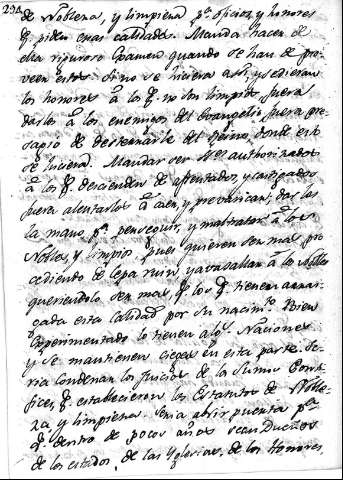 294
de Nobleza, y limpieza pª. oficios, y honores
q. piden esas calidades. Manda hacer de
ella riguroso Examen quando se han de pro-
veer estos. Si no se hiciera assi, y se dieran
los honores à los q. no los limpios fuera
darlos à los enemigos del evangelio, fuera pre-
sagio de desterrarle del Reino, donde esto
se hiciera. Mandar ser authorizados
à los q. descienden de afrentados, y castigados
fuera alentarlos à caer, y prevaricar; dar les
la mano pª. perseguir, y maltratar à los
Nobles, y limpios, pues quieren ser mas pro
cediendo de cepa ruin y avasallan à los Nobles
queriendolo ser mas q. los q. tienen arrai-
gada esta calidad por su nacimᵗᵒ. Bien
experimentado lo tienen alg. Naciones
y se mantienen ciegas en esta parte. Se-
ria condenar los Juicios de los Sumos Ponti-
fices, q. establecieron los Estatutos de Noble-
za y limpieza. Seria abrir puerta pª.
q. dentro de pocos años sean Dueños
de los estados, de las Yglesias, de los Honores,